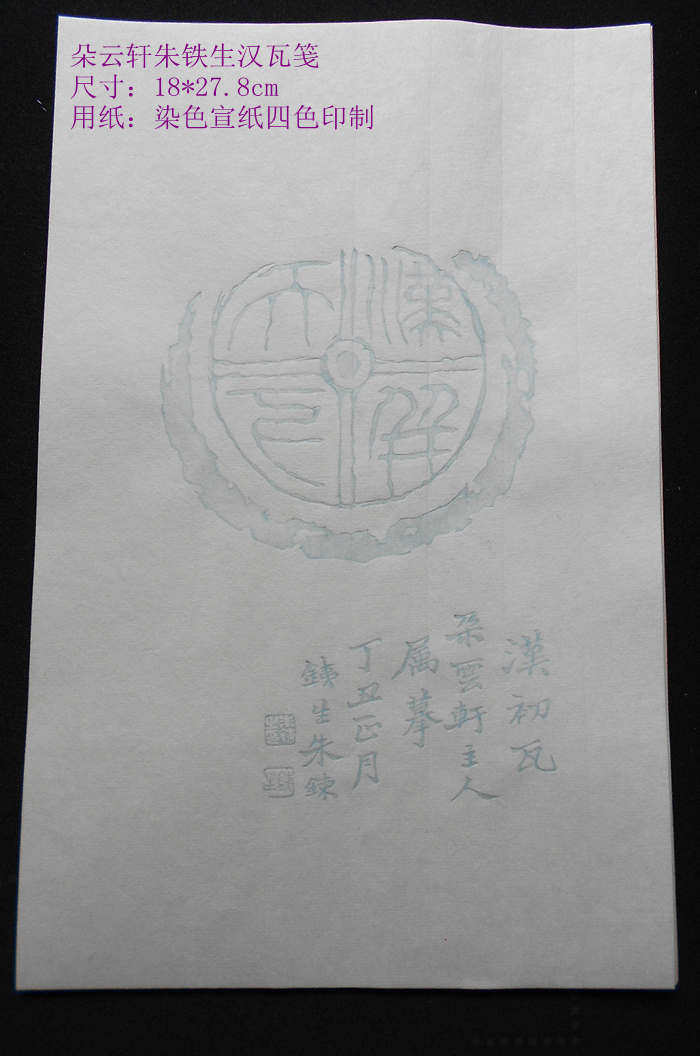 朵云轩朱铁生汉瓦笺
尺寸：18*27.8cm
用纸：染色宣纸四色印制
漢初瓦
朵雲軒主人
属摹
丁丑正月
鐵生朱鍊